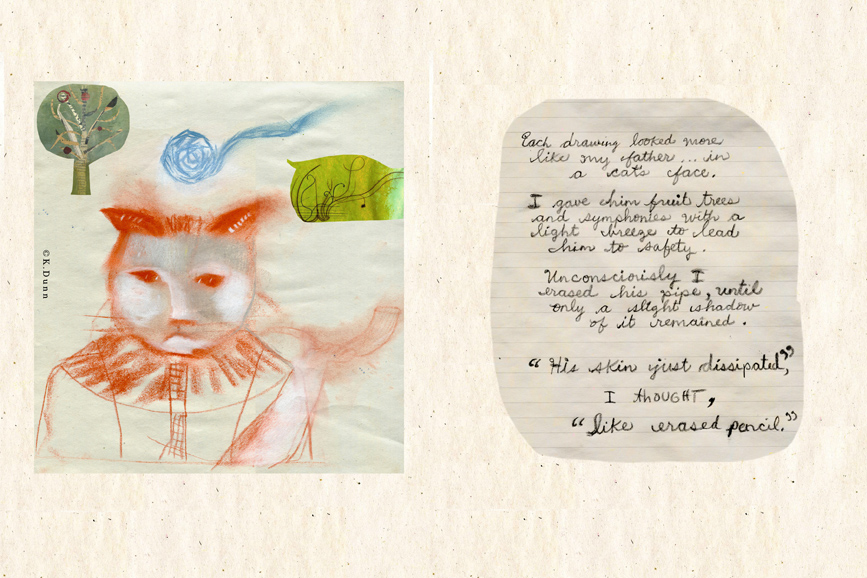 ©K.Dunn
Each drawing looked more
like my father... in
a cat's face.
I gave him fruit trees
and symphonies with a
light breeze to lead
him to safety.
Unconsciously I
erased his pipe, until
only a slight shadow
of it remained.
"His skin just dissipated,"
I thOUGHT,
"like erased pencil."